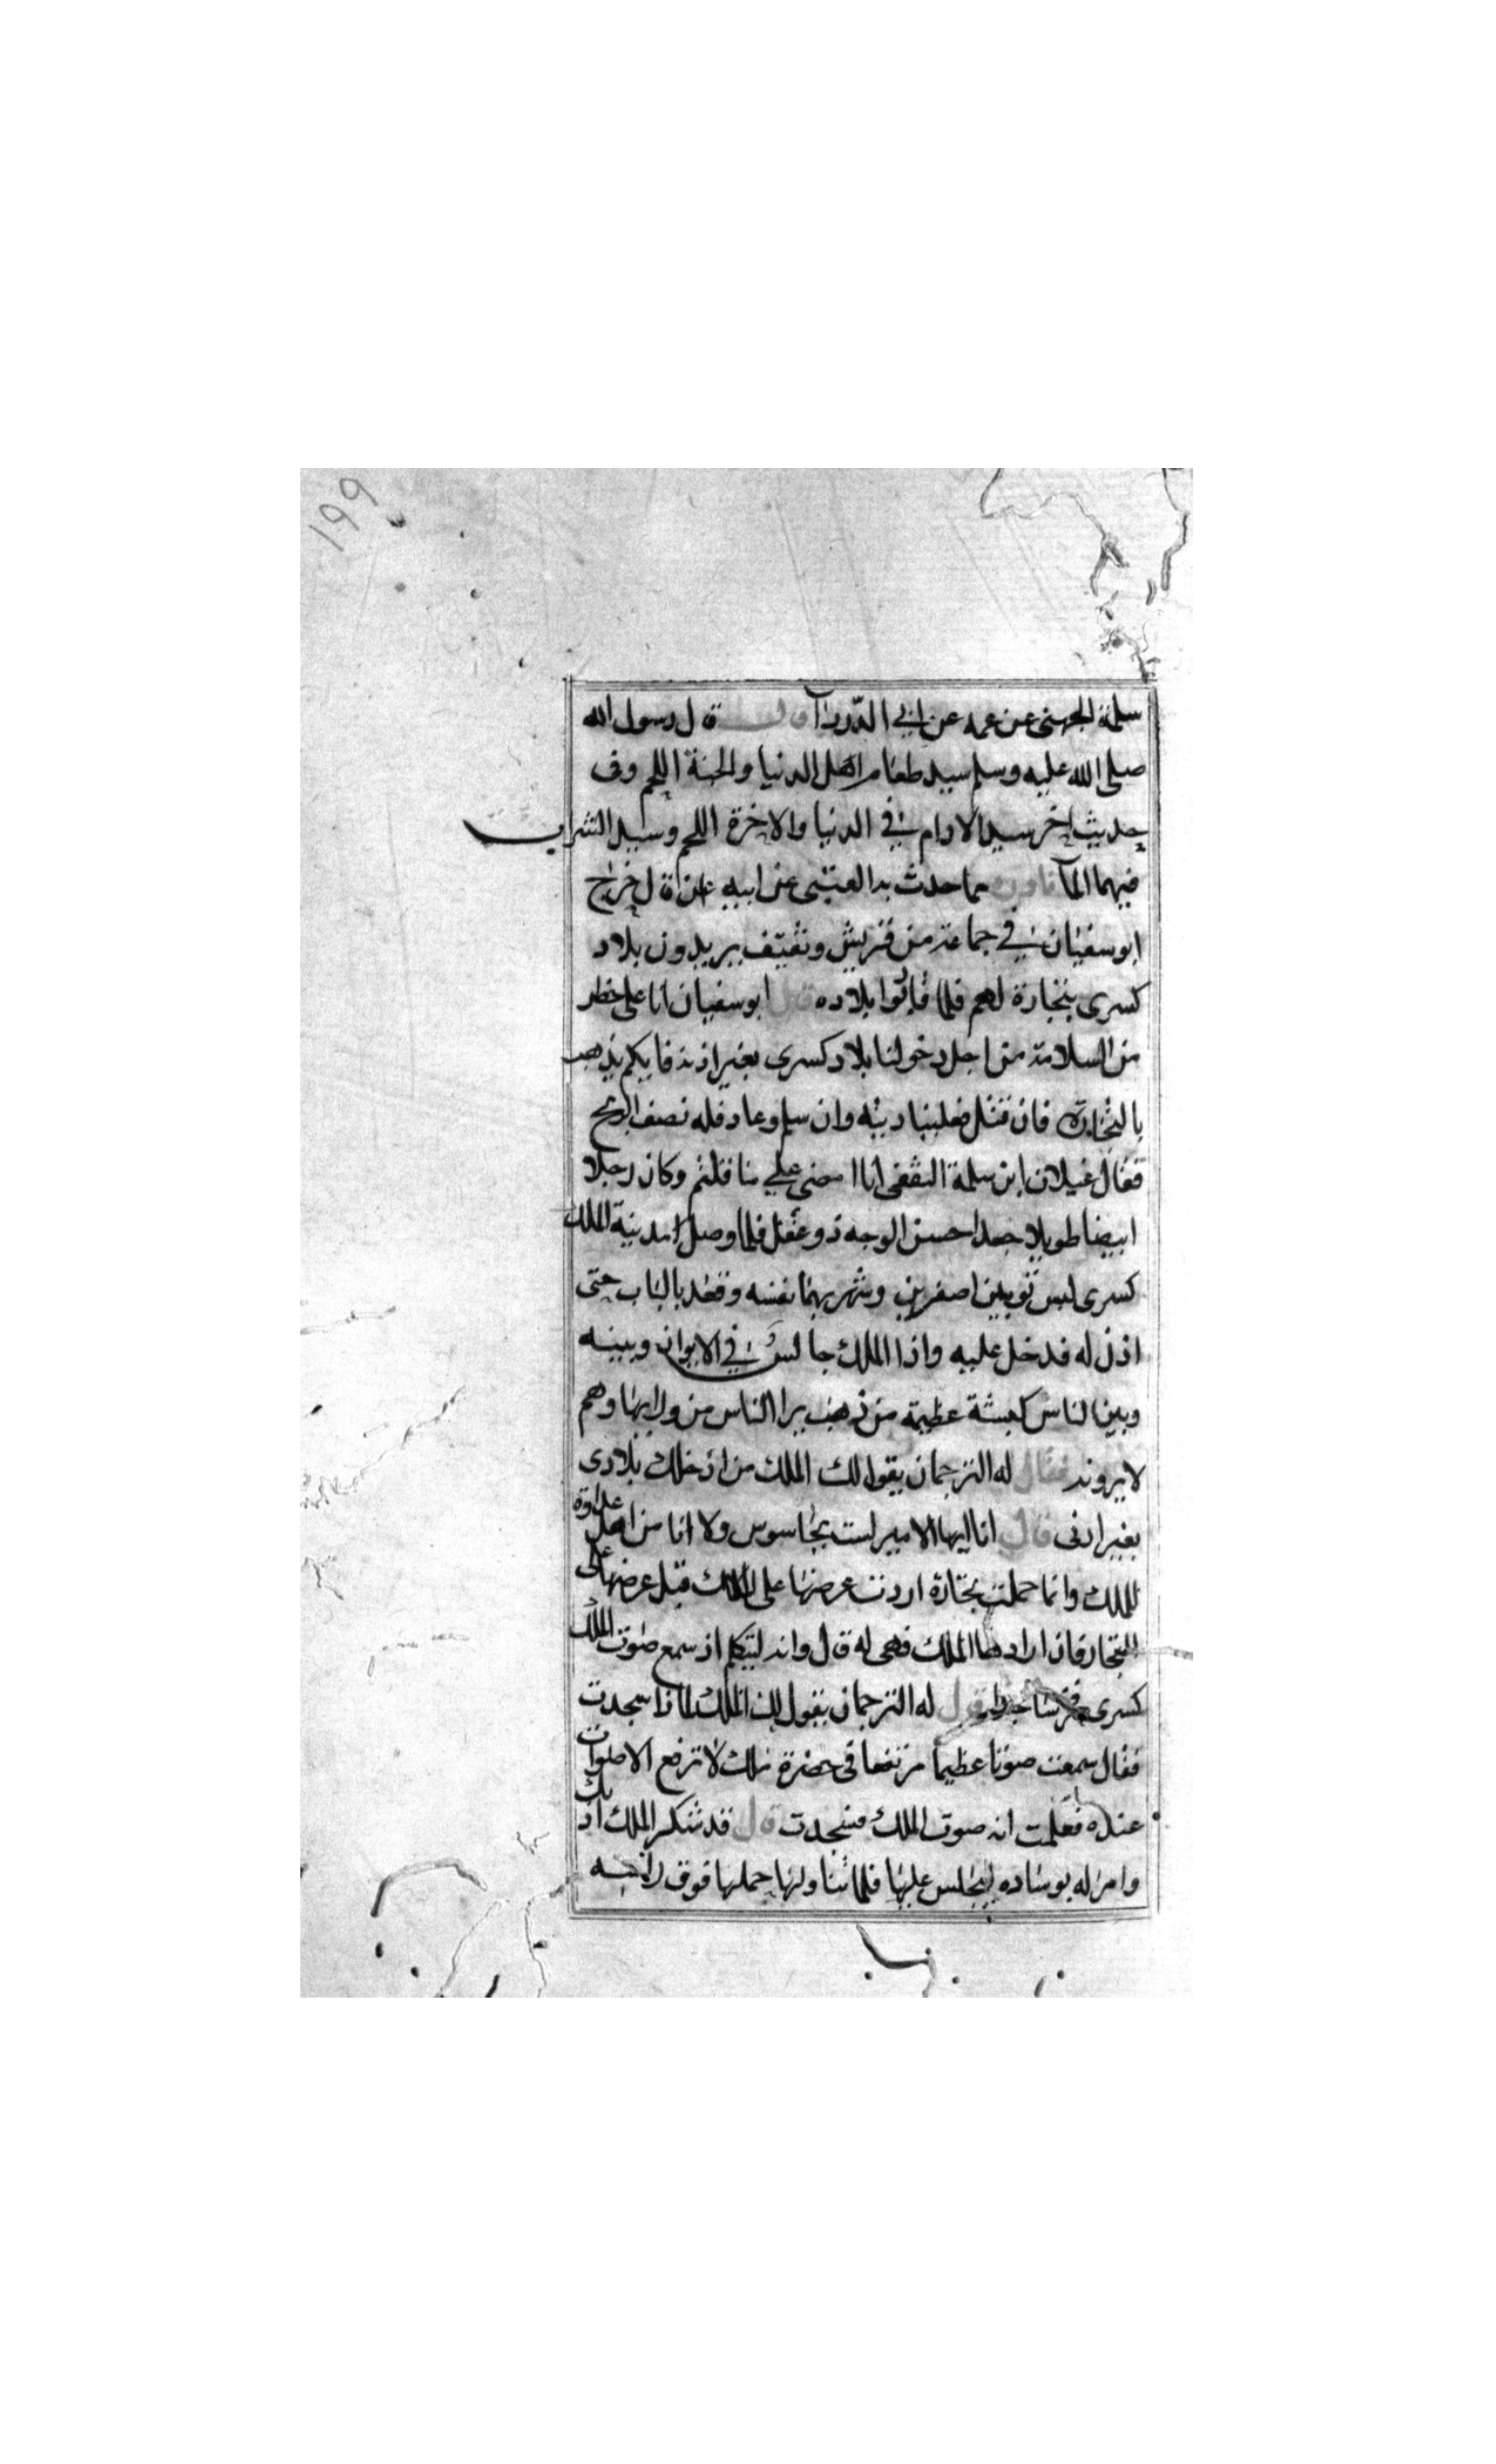 ١٩٩
سلمة الجهنى عن عمه عن ابي الدّردآ قال قال رسول الله
صلى الله عليه وسلم سيد طعام اهل الدنيا والجنة اللحم وفى
حديث اخر سيد الادام في الدنيا والاخرة اللحم وسيد الشراب
فيهما المآ مما حدث به العتبى عن ابيه قال خرج
ابو سفيان في جماعة من قريش وثقيف يريدون بلاد
كسرى بتجارة لهم فلما بلاده قال ابو سفيان انا على خطر
من السلامة من اجل دخولنا بلاد كسرى بغير اذنه فايكم يذهب
بالتجارة فان قتل فعلينا ديته وان سلم وعاد فله نصف الربح
فقال غيلان ابن سلمة الثقفى انا امضى على ما قلتم وكان رجلا
ابيضا طويلا جعدا حسن الوجه ذو عقل فلما وصل مدينة الملك
كسرى لبس ثوبين اصفرين وشهر بهما نفسه وقعد بالباب حتى
اذن له فدخل عليه واذا الملك جالس في الايوان وبينه
وبين الناس عظيمة من ذهب يرا الناس من ورايها وهم
لا يرونه فقال له الترجمان يقول لك الملك من ادخلك بلادى
بغير اذنى قال انا ايها الامير لست بجاسوس ولا انا من اهل عداوة
للملك وانما حملت تجارة اردت عرضها على الملك قبل عرضها على
التجار فان ارادها الملك فهى له قال وانه ليتكلم اذ سمع صوت الملك
كسرى فخر ساجدا قال له الترجمان يقول لك الملك لماذا سجدت
فقال سمعت صوتا عظيما مرتفعا فى حضرة ملك لا ترفع الاصوات
عنده فعلمت انه صوت الملك فسجدت قال قد شكر الملك ادبك
وامر له بوساده ليجلس عليها فلما تناولها حملها فوق راسه